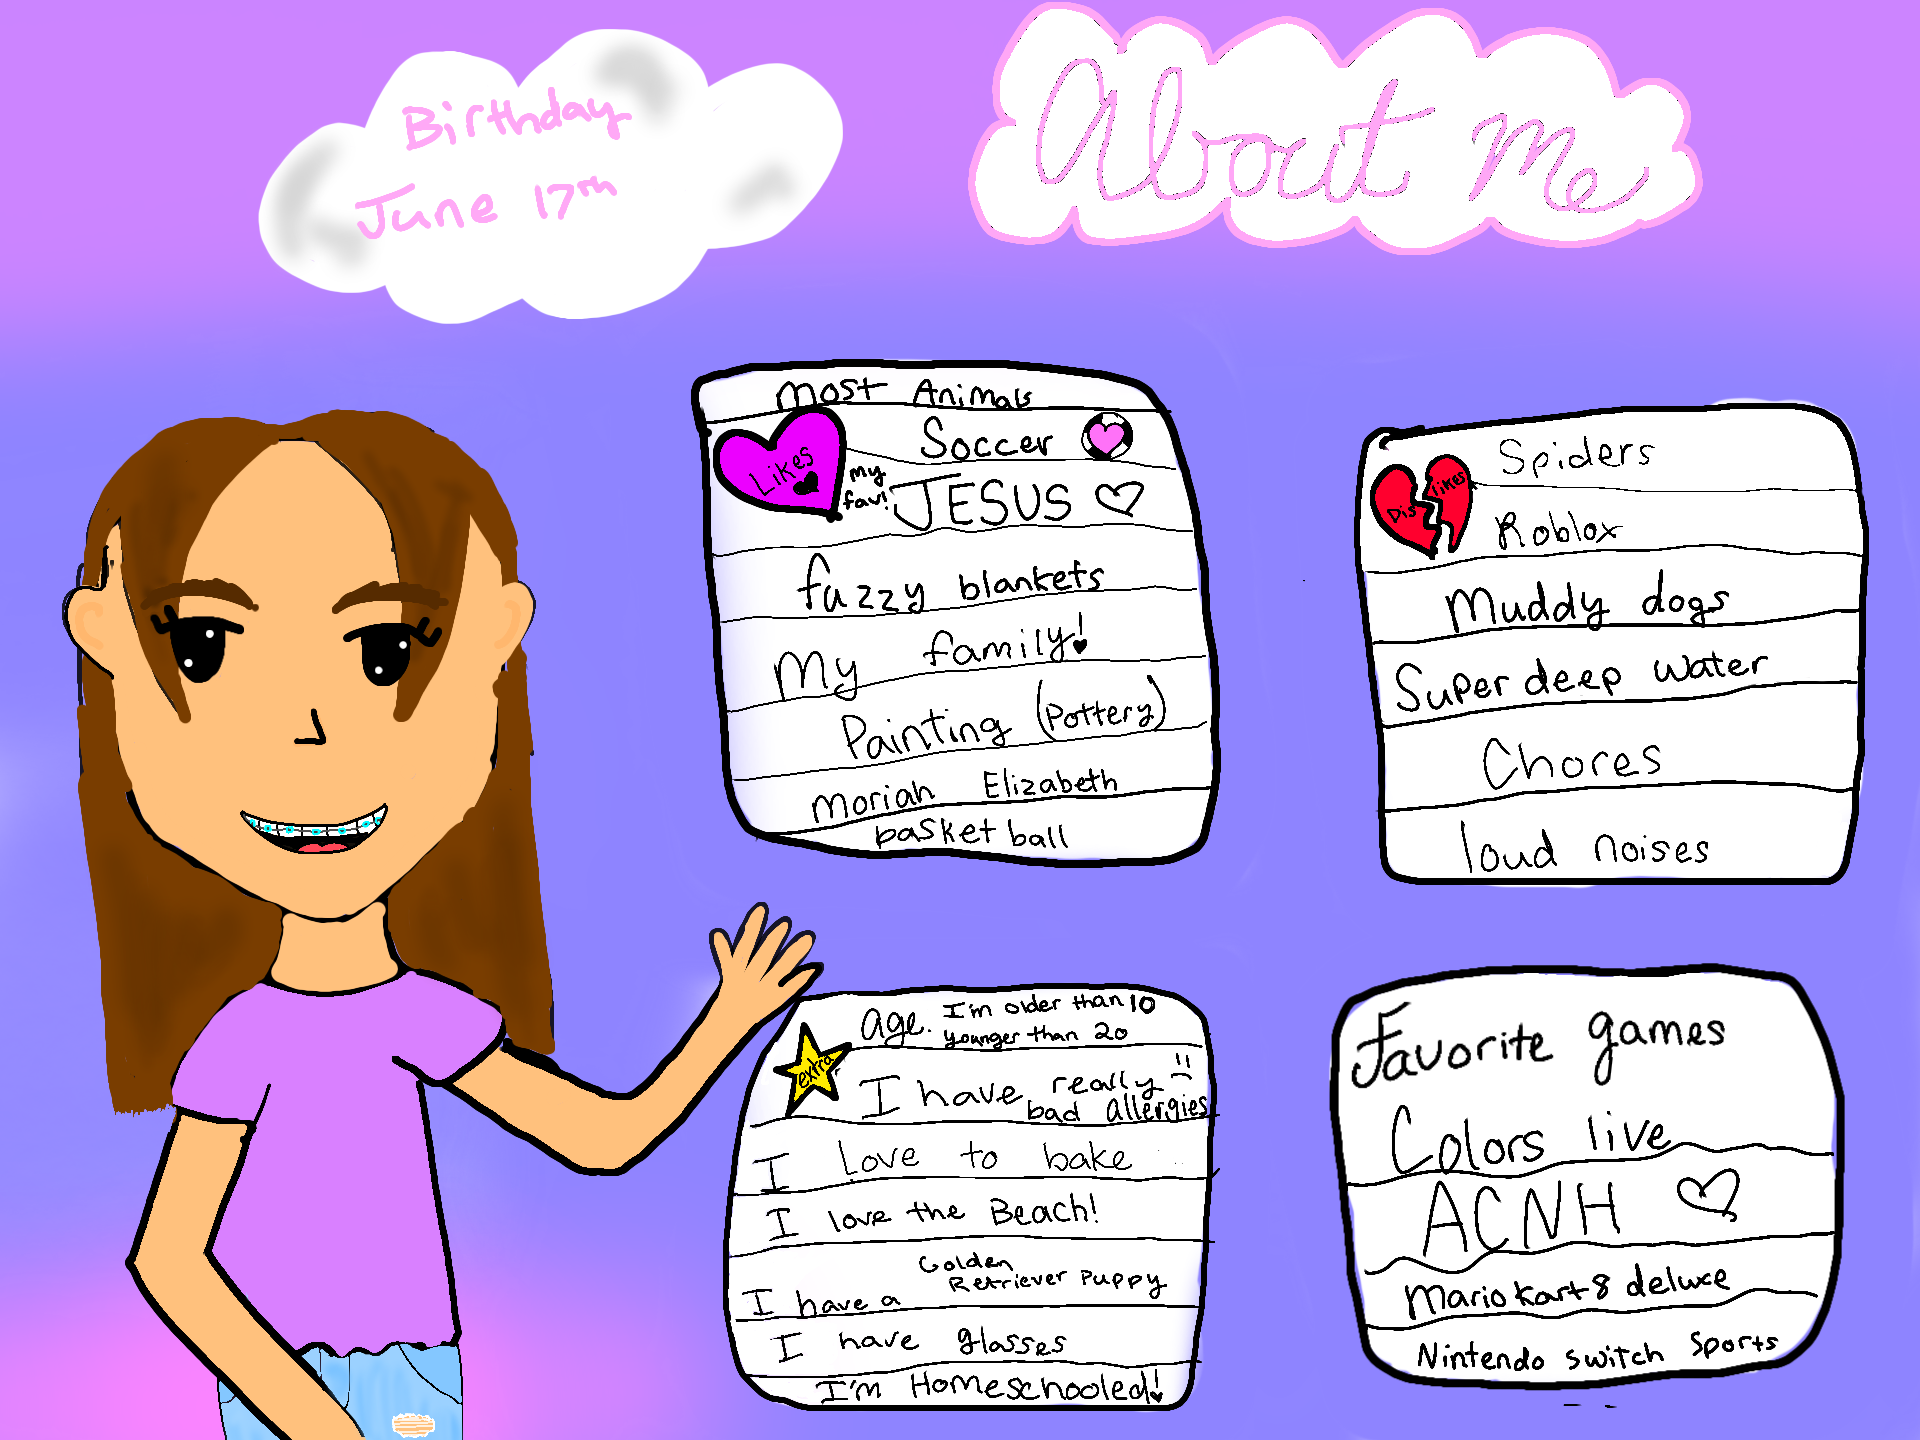 Birthday
June 17th
About Me
Most Animals
Likes
Soccer
my fav! JESUS
fuzzy blankets
My family!
Painting (Pottery)
Moriah Elizabeth
basket ball
Dis likes
Spiders
Roblox
Muddy dogs
Super deep water
Chores
loud noises
age. I'm older than 10
younger than 20
extra
I have really bad allergies
I Love to bake
I love the Beach!
I have a Golden Retriever Puppy
I have glasses
I'm Homeschooled!
Favorite games
Colors live
ACNH
Mario kart 8 deluxe
Nintendo switch Sports